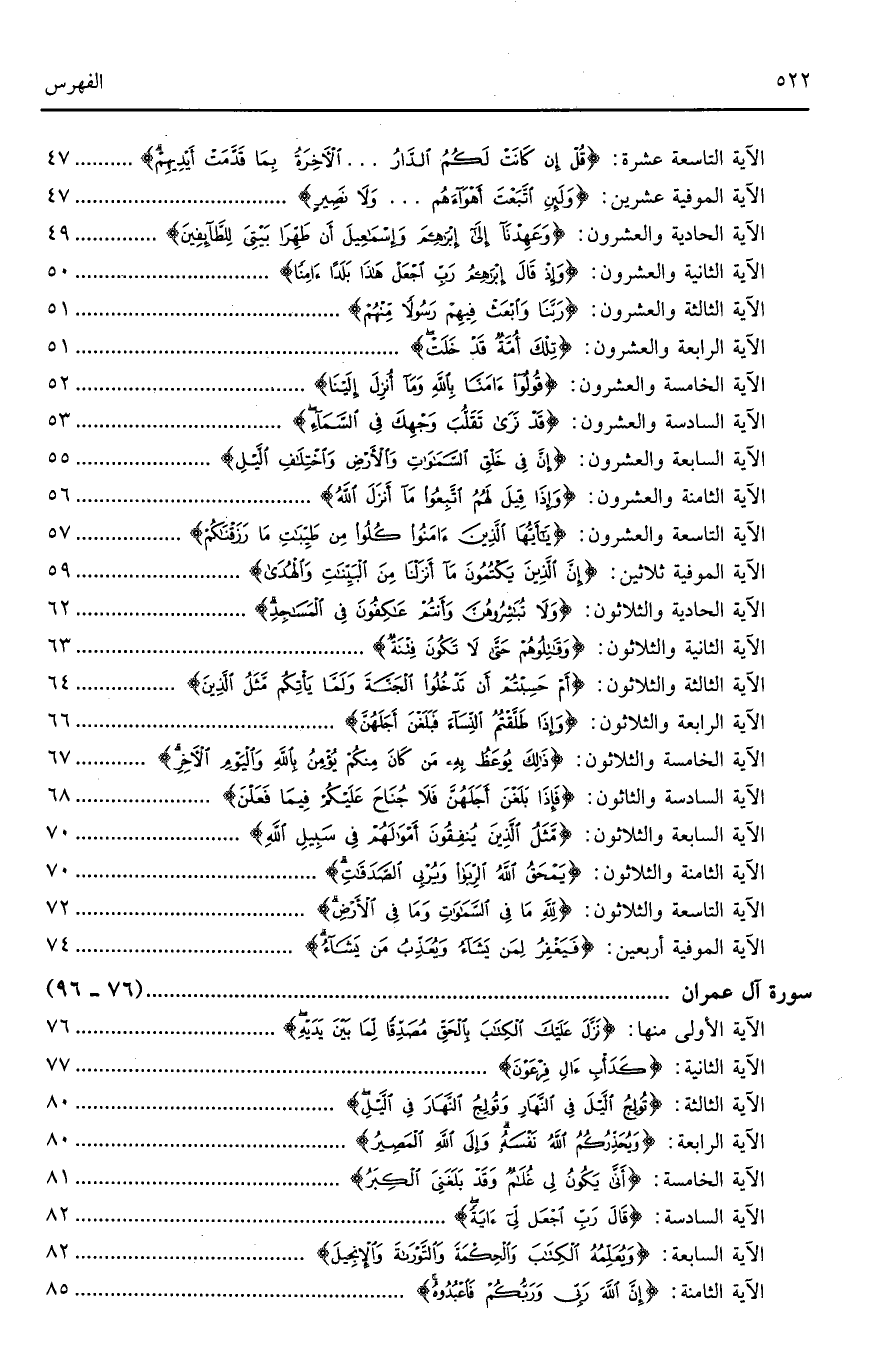 ٥٢٢ الفهرس
الآية التاسعة عشرة: ﴿قُلْ إِن كَانَتْ لَكُمُ الدَّارُ ... الْآخِرَةُ بِمَا قَدَّمَتْ أَيْدِيهِمْ﴾ .......... ٤٧
الآية الموفية عشرين: ﴿وَلَئِنِ اتَّبَعْتَ أَهْوَاءَهُم ... وَلَا نَصِيرٍ﴾ .......... ٤٧
الآية الحادية والعشرون: ﴿وَعَهِدْنَا إِلَىٰ إِبْرَاهِيمَ وَإِسْمَاعِيلَ أَن طَهِّرَا بَيْتِيَ لِلطَّائِفِينَ﴾ .......... ٤٩
الآية الثانية والعشرون: ﴿وَإِذْ قَالَ إِبْرَاهِيمُ رَبِّ اجْعَلْ هَٰذَا بَلَدًا ءَامِنًا﴾ .......... ٥٠
الآية الثالثة والعشرون: ﴿رَبَّنَا وَابْعَثْ فِيهِمْ رَسُولًا مِّنْهُمْ﴾ .......... ٥١
الآية الرابعة والعشرون: ﴿تِلْكَ أُمَّةٌ قَدْ خَلَتْ﴾ .......... ٥١
الآية الخامسة والعشرون: ﴿قُولُوا ءَامَنَّا بِاللَّهِ وَمَا أُنزِلَ إِلَيْنَا﴾ .......... ٥٢
الآية السادسة والعشرون: ﴿قَدْ نَرَىٰ تَقَلُّبَ وَجْهِكَ فِي السَّمَاءِ﴾ .......... ٥٣
الآية السابعة والعشرون: ﴿إِنَّ فِي خَلْقِ السَّمَاوَاتِ وَالْأَرْضِ وَاخْتِلَافِ اللَّيْلِ﴾ .......... ٥٥
الآية الثامنة والعشرون: ﴿وَإِذَا قِيلَ لَهُمُ اتَّبِعُوا مَا أَنزَلَ اللَّهُ﴾ .......... ٥٦
الآية التاسعة والعشرون: ﴿يَا أَيُّهَا الَّذِينَ ءَامَنُوا كُلُوا مِن طَيِّبَاتِ مَا رَزَقْنَاكُمْ﴾ .......... ٥٧
الآية الموفية ثلاثين: ﴿إِنَّ الَّذِينَ يَكْتُمُونَ مَا أَنزَلْنَا مِنَ الْبَيِّنَاتِ وَالْهُدَىٰ﴾ .......... ٥٩
الآية الحادية والثلاثون: ﴿وَلَا تُبَاشِرُوهُنَّ وَأَنتُمْ عَاكِفُونَ فِي الْمَسَاجِدِ﴾ .......... ٦٢
الآية الثانية والثلاثون: ﴿وَقَاتِلُوهُمْ حَتَّىٰ لَا تَكُونَ فِتْنَةٌ﴾ .......... ٦٣
الآية الثالثة والثلاثون: ﴿أَمْ حَسِبْتُمْ أَن تَدْخُلُوا الْجَنَّةَ وَلَمَّا يَأْتِكُم مَّثَلُ الَّذِينَ﴾ .......... ٦٤
الآية الرابعة والثلاثون: ﴿وَإِذَا طَلَّقْتُمُ النِّسَاءَ فَبَلَغْنَ أَجَلَهُنَّ﴾ .......... ٦٦
الآية الخامسة والثلاثون: ﴿ذَٰلِكَ يُوعَظُ بِهِ مَن كَانَ مِنكُمْ يُؤْمِنُ بِاللَّهِ وَالْيَوْمِ الْآخِرِ﴾ .......... ٦٧
الآية السادسة والثاثون: ﴿فَإِذَا بَلَغْنَ أَجَلَهُنَّ فَلَا جُنَاحَ عَلَيْكُمْ فِيمَا فَعَلْنَ﴾ .......... ٦٨
الآية السابعة والثلاثون: ﴿مَّثَلُ الَّذِينَ يُنفِقُونَ أَمْوَالَهُمْ فِي سَبِيلِ اللَّهِ﴾ .......... ٧٠
الآية الثامنة والثلاثون: ﴿يَمْحَقُ اللَّهُ الرِّبَوٰا وَيُرْبِي الصَّدَقَاتِ﴾ .......... ٧٠
الآية التاسعة والثلاثون: ﴿لِلَّهِ مَا فِي السَّمَاوَاتِ وَمَا فِي الْأَرْضِ﴾ .......... ٧٢
الآية الموفية أربعين: ﴿فَيَغْفِرُ لِمَن يَشَاءُ وَيُعَذِّبُ مَن يَشَاءُ﴾ .......... ٧٤
سورة آل عمران .......... (٧٦ - ٩٦)
الآية الأولى منها: ﴿نَزَّلَ عَلَيْكَ الْكِتَابَ بِالْحَقِّ مُصَدِّقًا لِّمَا بَيْنَ يَدَيْهِ﴾ .......... ٧٦
الآية الثانية: ﴿كَدَأْبِ ءَالِ فِرْعَوْنَ﴾ .......... ٧٧
الآية الثالثة: ﴿تُولِجُ اللَّيْلَ فِي النَّهَارِ وَتُولِجُ النَّهَارَ فِي اللَّيْلِ﴾ .......... ٨٠
الآية الرابعة: ﴿وَيُحَذِّرُكُمُ اللَّهُ نَفْسَهُ وَإِلَى اللَّهِ الْمَصِيرُ﴾ .......... ٨٠
الآية الخامسة: ﴿أَنَّىٰ يَكُونُ لِي غُلَامٌ وَقَدْ بَلَغَنِيَ الْكِبَرُ﴾ .......... ٨١
الآية السادسة: ﴿قَالَ رَبِّ اجْعَل لِّي ءَايَةً﴾ .......... ٨٢
الآية السابعة: ﴿وَيُعَلِّمُهُ الْكِتَابَ وَالْحِكْمَةَ وَالتَّوْرَاةَ وَالْإِنجِيلَ﴾ .......... ٨٢
الآية الثامنة: ﴿إِنَّ اللَّهَ رَبِّي وَرَبُّكُمْ فَاعْبُدُوهُ﴾ .......... ٨٥